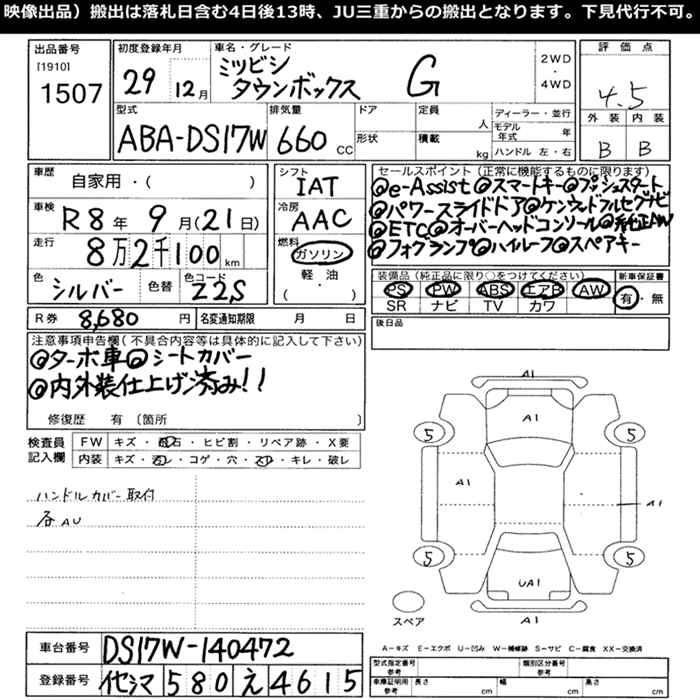 映像出品）搬出は落札日含む4日後13時、JU三重からの搬出となります。下見代行不可。
出品番号 [1910] 1507
初度登録年月 29 12月
車名・グレード ミツビシ タウンボックス G
2WD・4WD
評価点 4.5
外装 内装
B B
型式 ABA-DS17W
排気量 660 CC
ドア 形状
定員 人 積載 kg
ディーラー・並行
モデル年式 年
ハンドル 左・右
車歴 自家用・( )
車検 R8年 9月(21日)
走行 8万2千100km
色 シルバー 色替 色コード Z2S
シフト IAT
冷房 AAC
燃料 ガソリン 軽・油 ( ・ )
セールスポイント(正常に機能するものに限ります)
◎e-Assist◎スマートキー◎プッシュスタート
◎パワースライドドア◎ケンウッドフルセグナビ
◎ETC◎オーバーヘッドコンソール◎純正AW
◎フォグランプ◎ハイルーフ◎スペアキー
装備品(純正品に限り○をつけてください)
PS PW ABS エアB AW
SR ナビ TV カワ
新車保証書 有・無
R券 8,680円 名変通知期限 月 日
後日品
注意事項申告欄(不具合内容等は具体的に記入して下さい)
◎ターボ車◎シートカバー
◎内外装仕上げ済み!!
修復歴 有〔箇所 〕
検査員記入欄
FW キズ・飛石・ヒビ割・リペア跡・X要
内装 キズ・汚レ・コゲ・穴・スレ・キレ・破レ
ハンドルカバー取付
各AU
A1
A1
5 5
A1 A1
5 5
UA1
A1
スペア
A-キズ E-エクボ U-凹み W-補修跡 S-サビ C-腐食 XX-交換済
車台番号 DS17W-140472
登録番号 イセシマ 580 え 4615
型式指定番号 参考
類別区分番号 参考
車庫証明用 参考 長さ cm 幅 cm 高さ cm